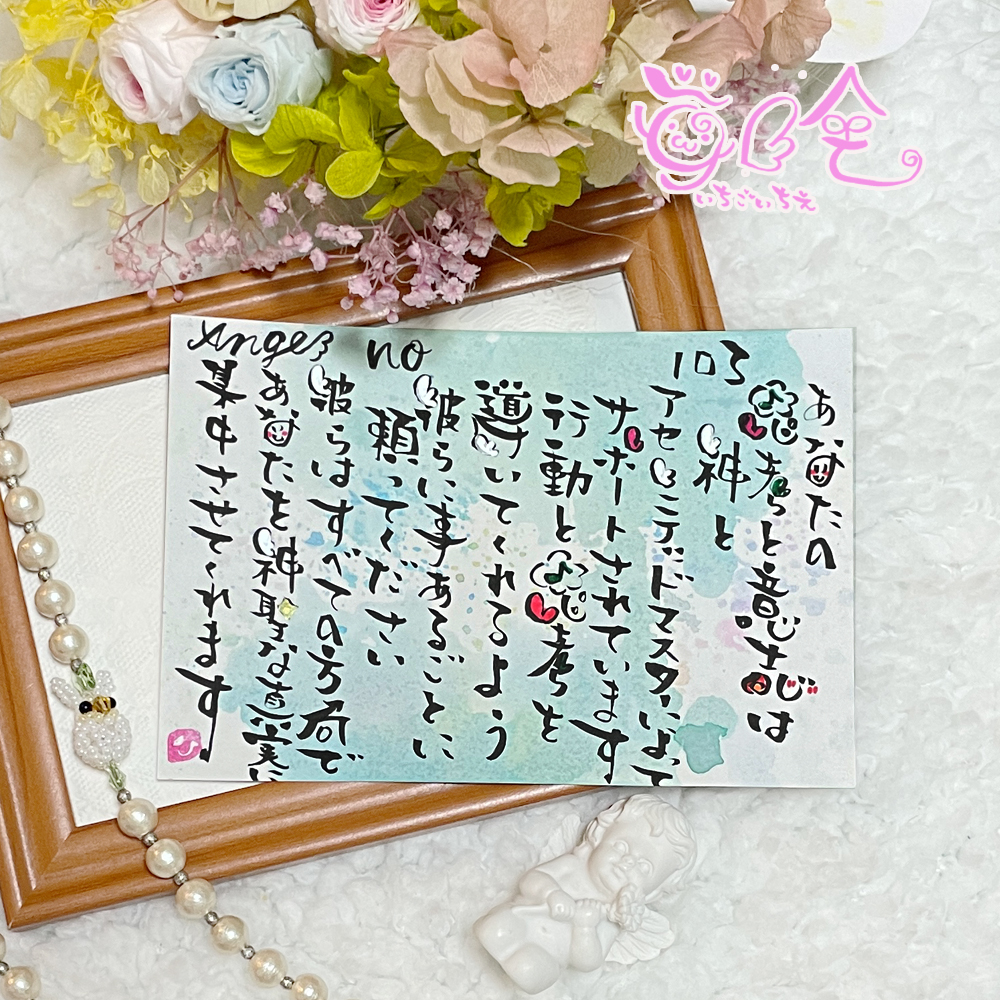 Angel no 103
あなたの
思考と意志は
神と
アセンデッドマスターによって
サポートされています
行動と思考を
導いてくれるよう
彼らに事あるごとに
頼ってください
彼らはすべての方向で
あなたを神聖な真実に
集中させてくれます
いちごいちえ